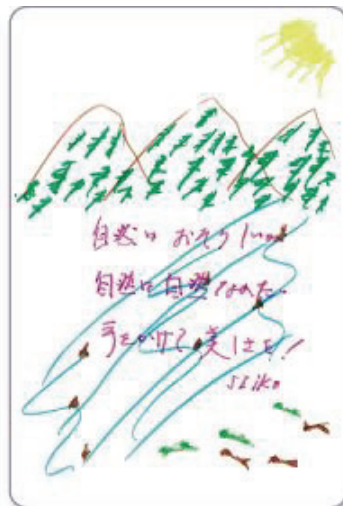 自然は おそろしい
自然は自然なのだ
手をかけて 美しさを!
seiko